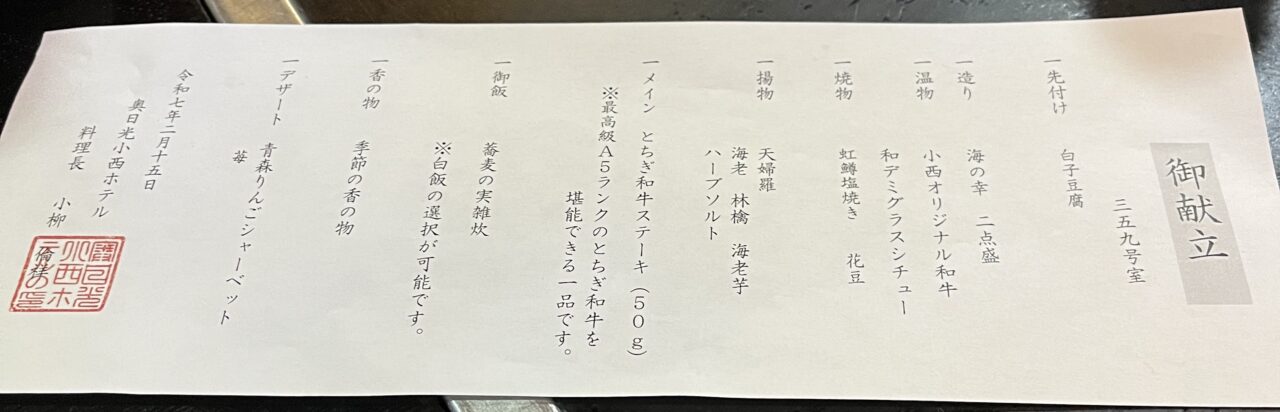 御献立
三五九号室
一先付け　白子豆腐
一造り　海の幸　二点盛
一温物　小西オリジナル和牛
和デミグラスシチュー
一焼物　虹鱒塩焼き　花豆
一揚物　天婦羅
海老　林檎　海老芋
ハーブソルト
一メイン　とちぎ和牛ステーキ（５０ｇ）
※最高級Ａ５ランクのとちぎ和牛を
堪能できる一品です。
一御飯　蕎麦の実雑炊
※白飯の選択が可能です。
一香の物　季節の香の物
一デザート　青森りんごシャーベット
苺
令和七年二月十五日
奥日光小西ホテル
料理長　小柳